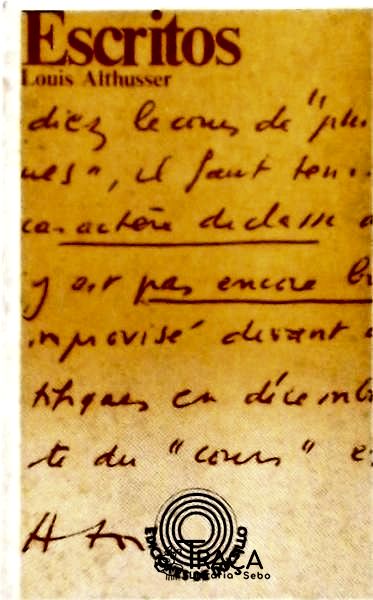 Escritos
Louis Althusser
diez le cours de "phi
ues", il faut ten
caractère de classe
y est pas encore
improvisé devant
tifiques en décemb
te du "cours" e
TRAÇA
Livraria Sebo